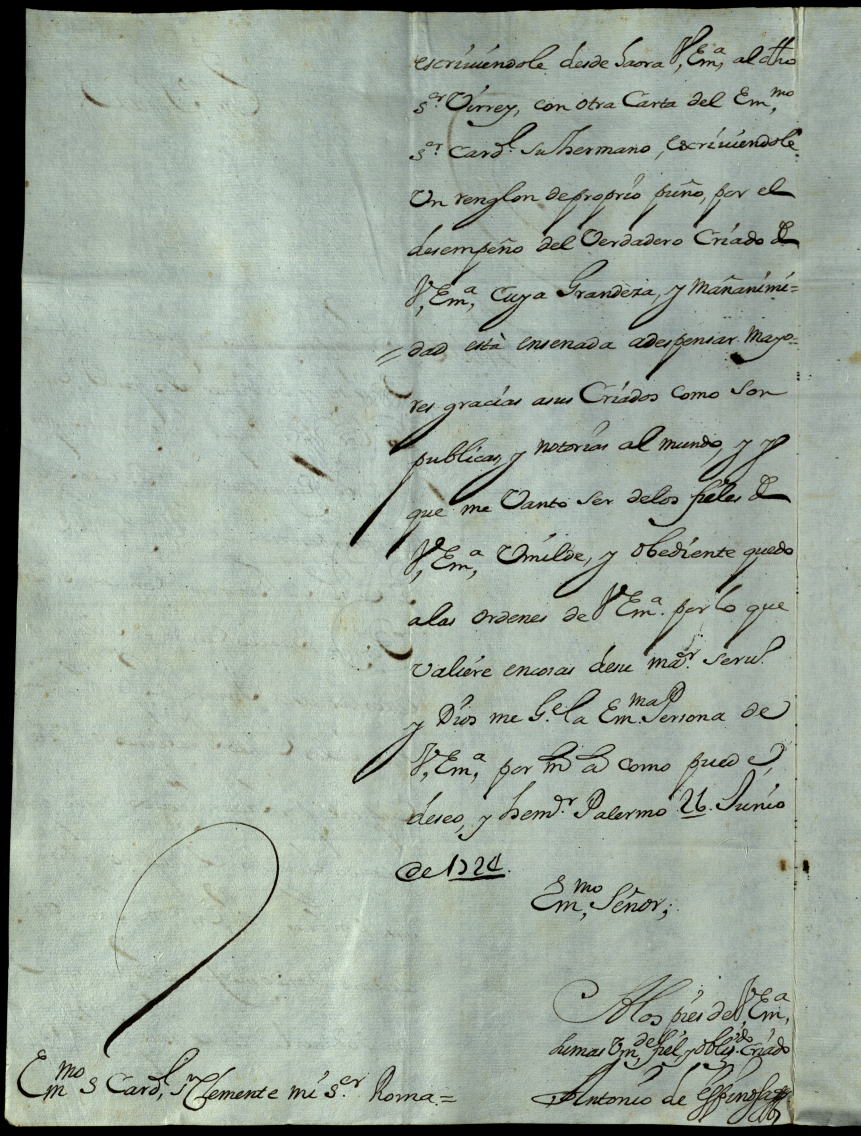 escriuiendole desde haora V, Em,ª al dho
s.or Virrey, con otra Carta del Em,mo
s.or Card.l su hermano, escriuiendole
Un renglon de proprio puño, por el
desempeño del Verdadero Criado de
V, Em,ª Cuya Grandeza, y Mañanimi=
=dad està ensenada adespensar Mayo=
res gracias asus Criados como son
publicas, y notorias al mundo, y yo
que me Vanto ser delos fieles de
V, Em,ª Umilde, y obediente quedo
alas ordenes de V Em.ª por lo que
valiére encosas desu mar. seru.
y Dios me G.e la Em.ma Persona de
V, Em,ª por m a como puede,
deseo, y hem.r Palermo 26. Junio
de 1724.
Em,mo Señor;
Alos pies de V Em,ª
su mas Um,de fiel, y oblig.do Criado
Antonio de Espinosa
Em,mo S Card,l S.n Clemente mi s.or Roma=